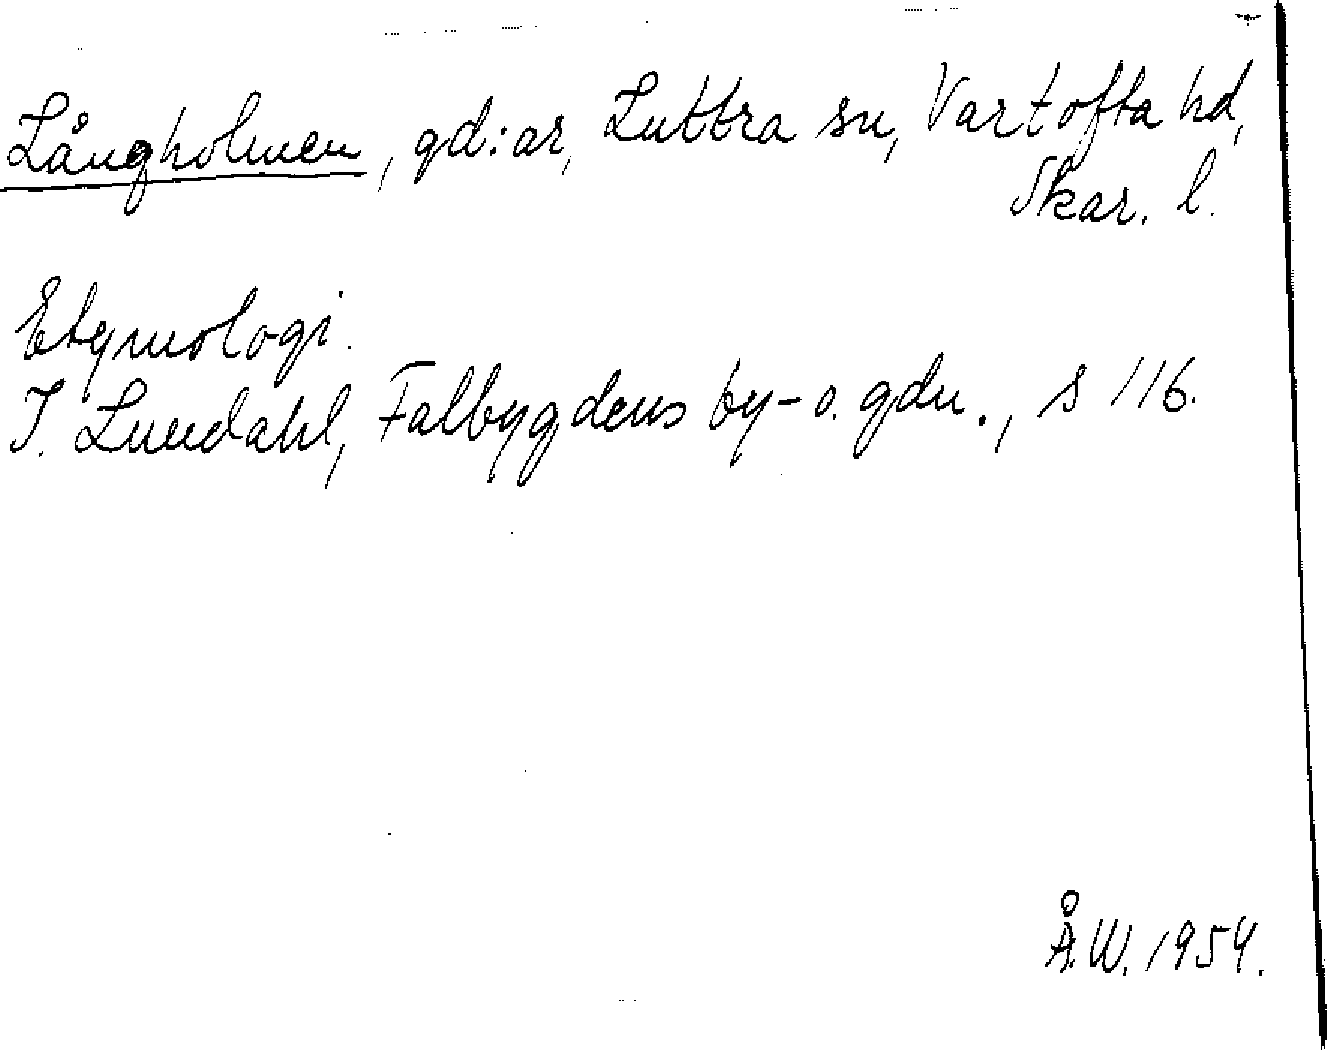 Långholmen, gd:ar, Luttra sn, Vartofta hd,
Skar. l.
Etymologi.
I. Lundahl, Falbygdens by- o. gdn., s 116.
Å.W. 1954.